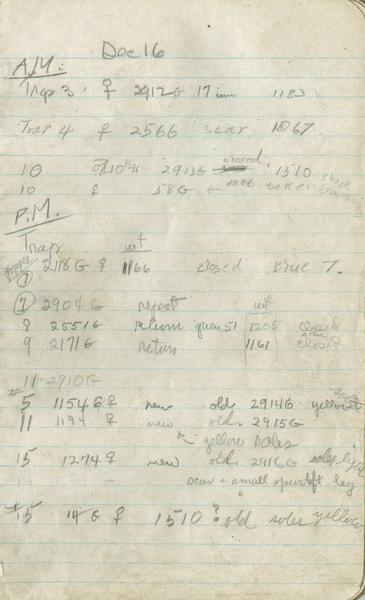 Dec 16
A.M.:
Trap 3 ♀ 2912G 17 1183
Trap 4 ♀ 2566 scar 1067
10 2913G closed 1510
10 ♀ 58G ← not taken
P.M.
Trap wt
7 2118G ♀ 1166 closed Blue 7.
7 2904G repeat wt
8 2551G return 1205 closed
9 2171G return 1161 closed
11 2910G
5 1154G ♀ new old. 2914G yellow
11 1194 ♀ new old. 2915G
yellow soles
15 1274 ♀ new old. 2916G soles
scar + small left leg
#15 14G ♀ 1510 ? old soles yellow